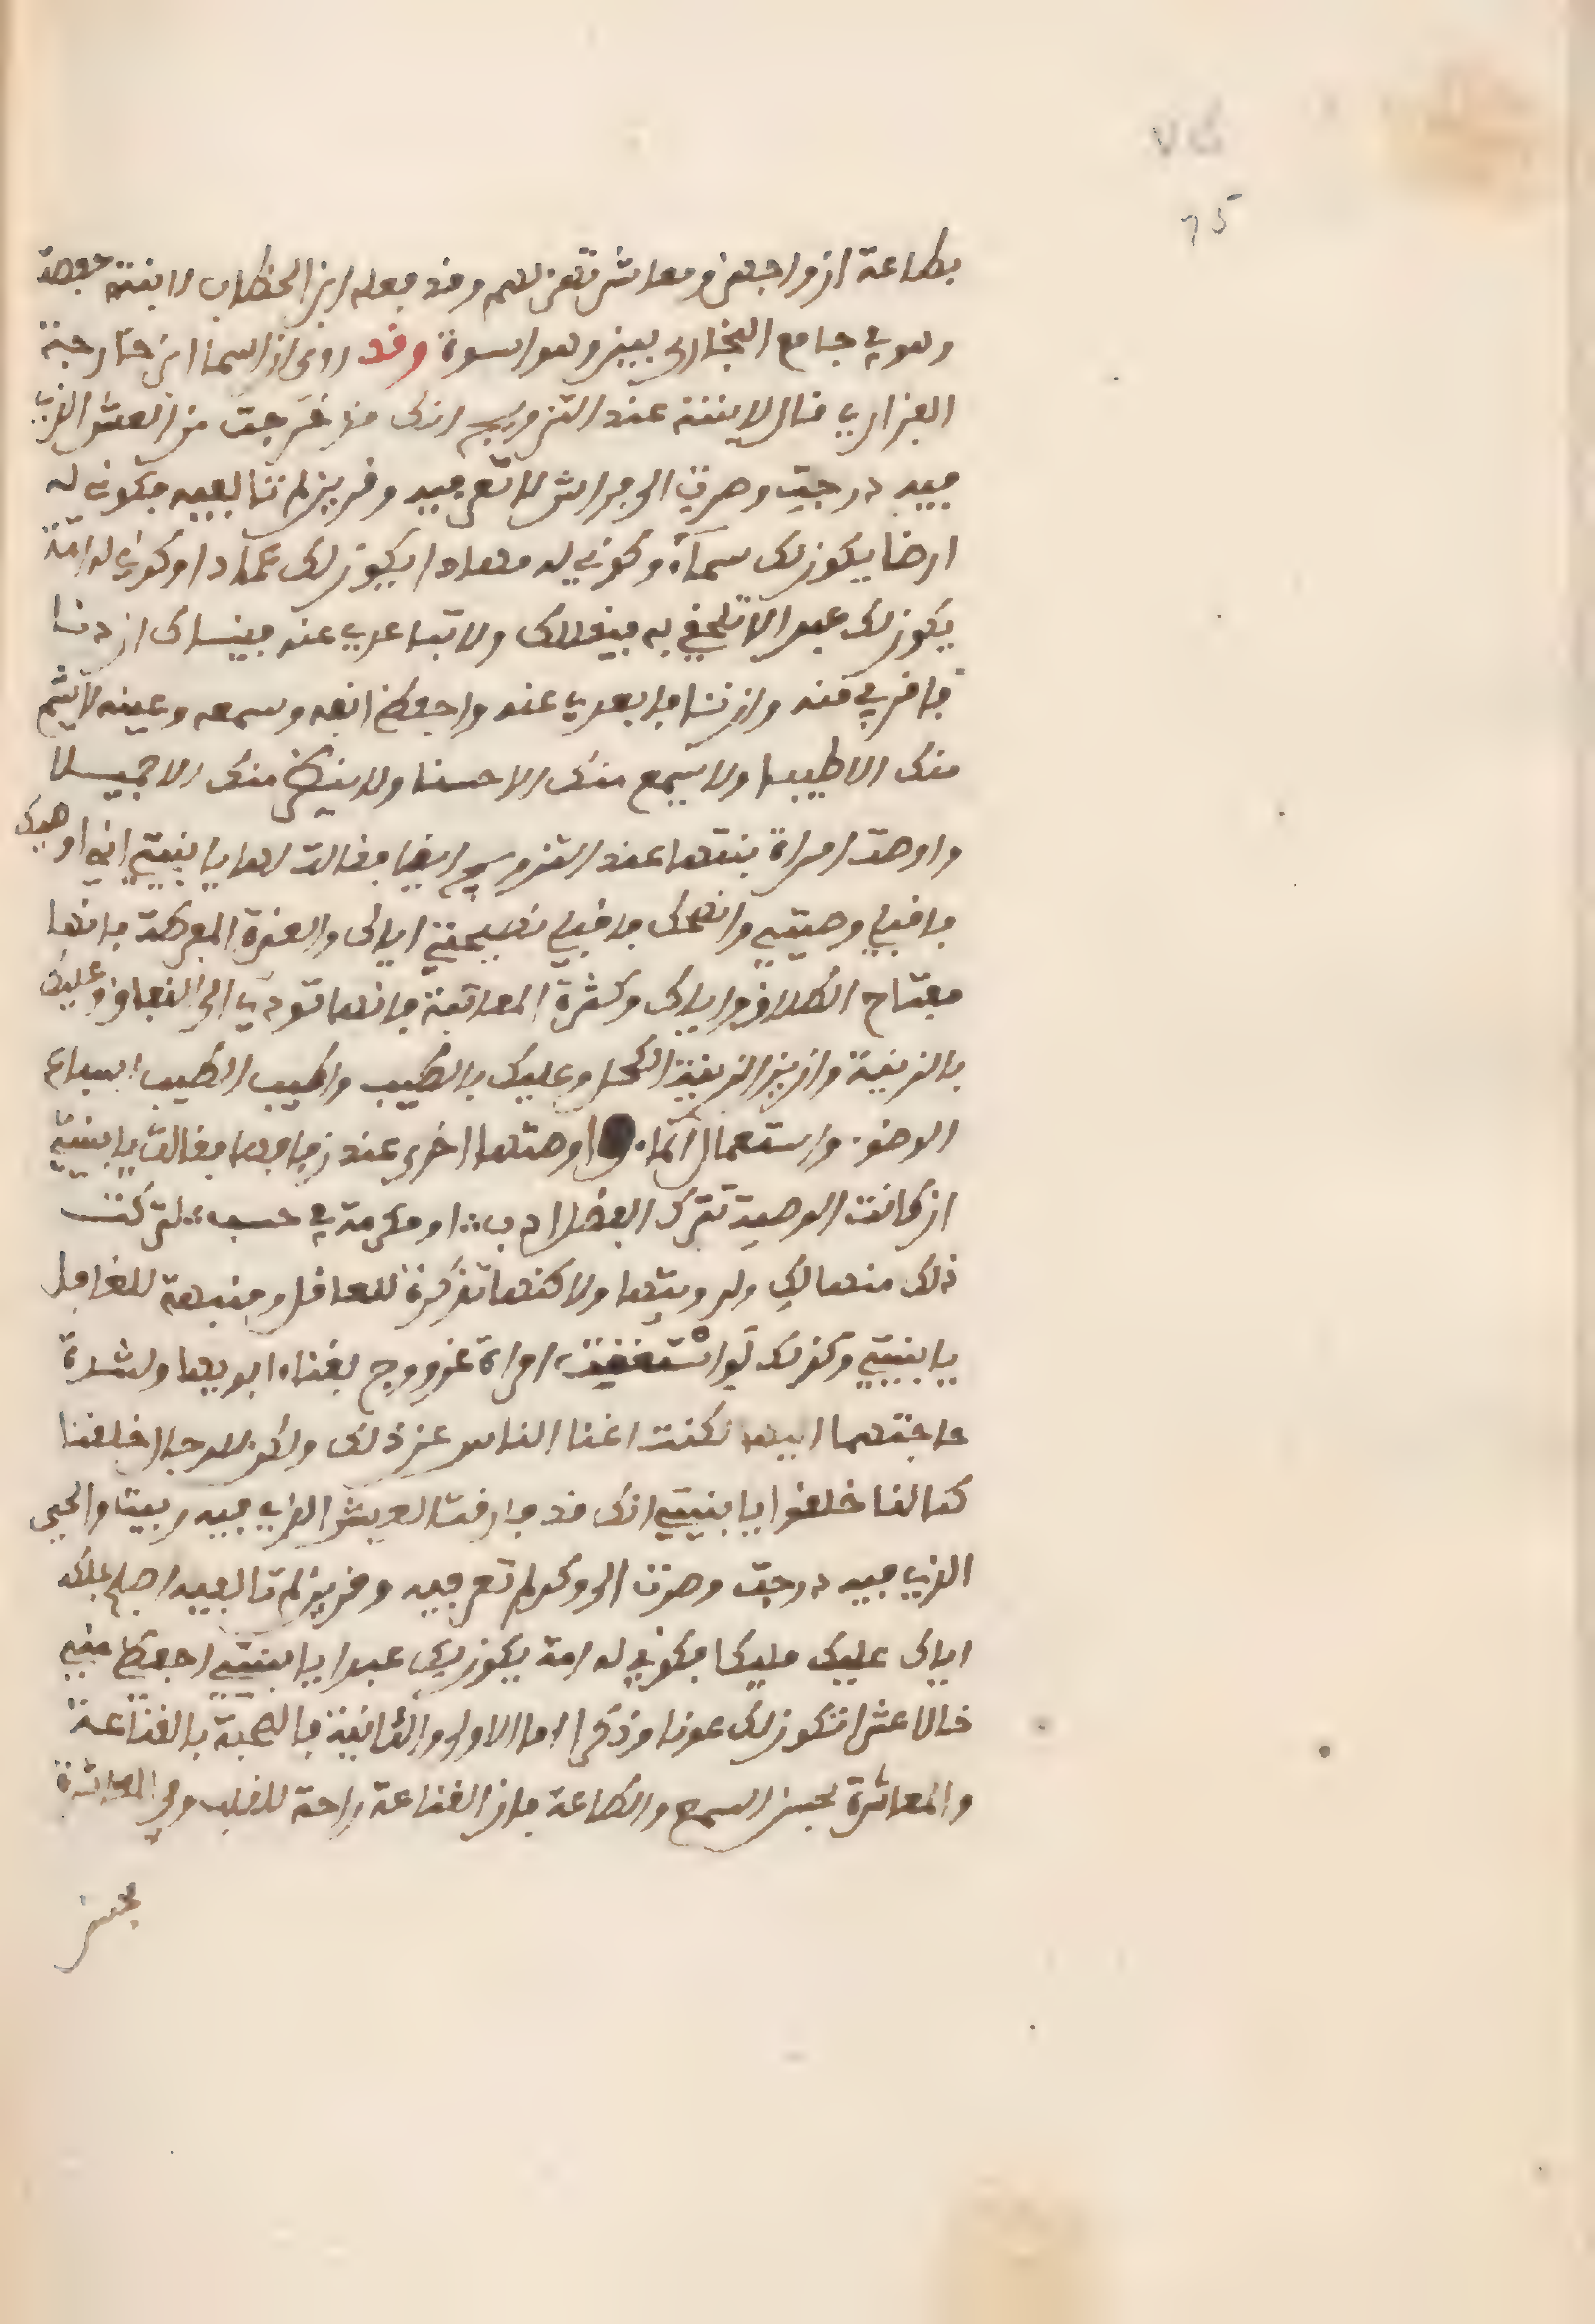 75
75
بطاعة ازواجهن ومعاشرتهن لهم وقد فعله ابن الخطاب لابنته حفصة
وهو في جامع البخاري بين وهو اسوة وقد روى ان اسما ابن خارجة
الفزاري قال لابنته عند التزويج انك قد خرجت من العش الذي
فيه درجت وصرت الى فراش لا تعرفيه وقرين لم تالفيه فكوني له
ارضا يكون لك سماء وكوني له مهادا يكون لك عمادا وكوني له امة
يكون لك عبدا لا تلحفي به فيقلاك ولا تباعدي عنه فينساك ان دنا
فاقربي منه وان نئا فابعدي عنه واحفظ انفه وسمعه وعينه لا يشم
منك الا طيبا ولا يسمع منك الا حسنا ولا ينظر منك الا جميلا
واوصت امراة بنتها عند التزويج ايضا فقالت لها يا بنيتي اني اوصيك
فاقبلي وصيتي وانصحك فاقبلي نصيحتي اياك والغيرة المفرطة فانها
مفتاح الطلاق واياك وكثرة المعاتبة فانها تودي الى البغا وعليك
بالزينة وازين الزينة الكحل وعليك بالطيب واطيب الطيب اسباغ
الوضوء واستعمال الماء واوصتها اخرى عند زفافها فقالت يا بنيتي
ان كانت الوصية تترك لفضل ادب او مكرمة في حسب لتركت
ذلك منها لك ولرويتها ولاكنها تذكرة للعاقل ومنبهة للغافل
يا بنيتي وكذلك لو استغنيت امراة عن زوج بغناء ابويها ولشدة
حاجتهما اليها لكنت اغنا الناس عن ذلك ولكن للرجال خلقنا
كما لنا خلقوا يا بنيتي انك قد فارقت العيش الذي فيه ربيت والحي
الذي فيه درجت وصرت الى وكر لم تعرفيه وقرين لم تالفيه اصبح بملكه
اياك عليك مليكا فكوني له امة يكون لك عبدا يا بنيتي احفظ مني
خالا عشرا تكون لك عونا وذكرا اما الاولى والثانية فالصحبة بالقناعة
والمعاشرة بحسن السمع والطاعة فان القناعة راحة للقلب وفي المعاشرة
بحسن